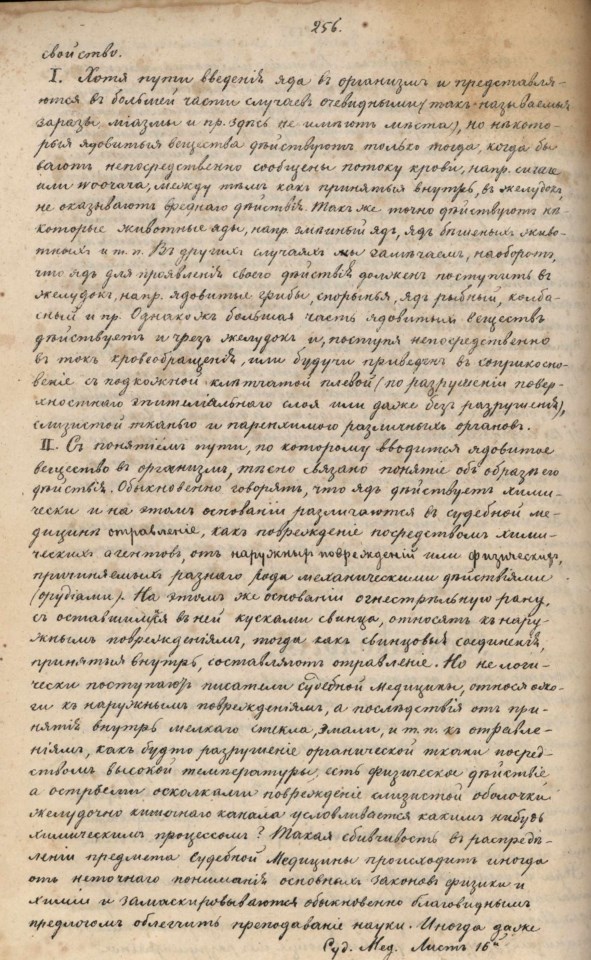 256.
свойство.
I. Хотя пути введенія яда въ организмъ и представля-
ются въ большей части случаевъ очевидными (такъ называемыя
заразы, міазмы и пр. здѣсь не имѣютъ мѣста), но нѣкото-
рыя ядовитыя вещества дѣйствуютъ только тогда, когда бы-
ваютъ непосредственно сообщены потоку крови, напр.
или между тѣмъ какъ принятыя внутрь, въ желудокъ,
не оказываютъ вреднаго дѣйствія. Такъ же точно дѣйствуютъ нѣ-
которые животные яды, напр. змѣиный ядъ, ядъ бѣшеныхъ живо-
тныхъ и т. п. Въ другихъ случаяхъ мы замѣчаемъ, наоборотъ,
что ядъ для проявленія своего дѣйствія долженъ поступить въ
желудокъ, напр. ядовитые грибы, спорынья, ядъ рыбный, колба-
сный и пр. Однакожъ большая часть ядовитыхъ веществъ
дѣйствуетъ и чрезъ желудокъ и, поступя непосредственно
въ токъ кровеобращенія, или будучи приведенъ въ соприкосно-
веніе съ подкожной клѣтчатой плевой (по разрушеніи повер-
хностнаго эпителіальнаго слоя или даже безъ разрушенія),
слизистой тканью и паренхимою различныхъ органовъ.
II. Съ понятіемъ пути, по которому вводится ядовитое
вещество въ организмъ, тѣсно связано понятіе объ образѣ его
дѣйствія. Обыкновенно говорятъ, что ядъ дѣйствуетъ хими-
чески и на этомъ основаніи различаются въ судебной ме-
дицинѣ отравленіе, какъ поврежденіе посредствомъ хими-
ческихъ агентовъ, отъ наружныхъ поврежденій или физическихъ,
причиняемыхъ разнаго рода механическими дѣйствіями
(орудіями). На этомъ же основаніи огнестрѣльную рану,
съ оставшимися въ ней кусками свинца, относятъ къ нару-
жнымъ поврежденіямъ, тогда какъ свинцовыя соединенія,
принятыя внутрь, составляютъ отравленіе. Но не логи-
чески поступаютъ писатели Судебной Медицины, относя ожо-
ги къ наружнымъ поврежденіямъ, а послѣдствія отъ при-
нятія внутрь мелкаго стекла, эмали, и т. п. къ отравле-
ніямъ, какъ будто разрушеніе органической ткани посред-
ствомъ высокой температуры, есть физическое дѣйствіе
а острыми осколками поврежденіе слизистой оболочки
желудочно кишечнаго канала условливается какимъ нибудь
химическимъ процессомъ? Такая сбивчивость въ распредѣ-
леніи предмета Судебной Медицины происходитъ иногда
отъ неточнаго пониманія основныхъ законовъ физики и
химіи и замаскировываются обыкновенно благовиднымъ
предлогомъ облегчить преподаваніе науки. Иногда даже
Суд. Мед. Листъ 16й